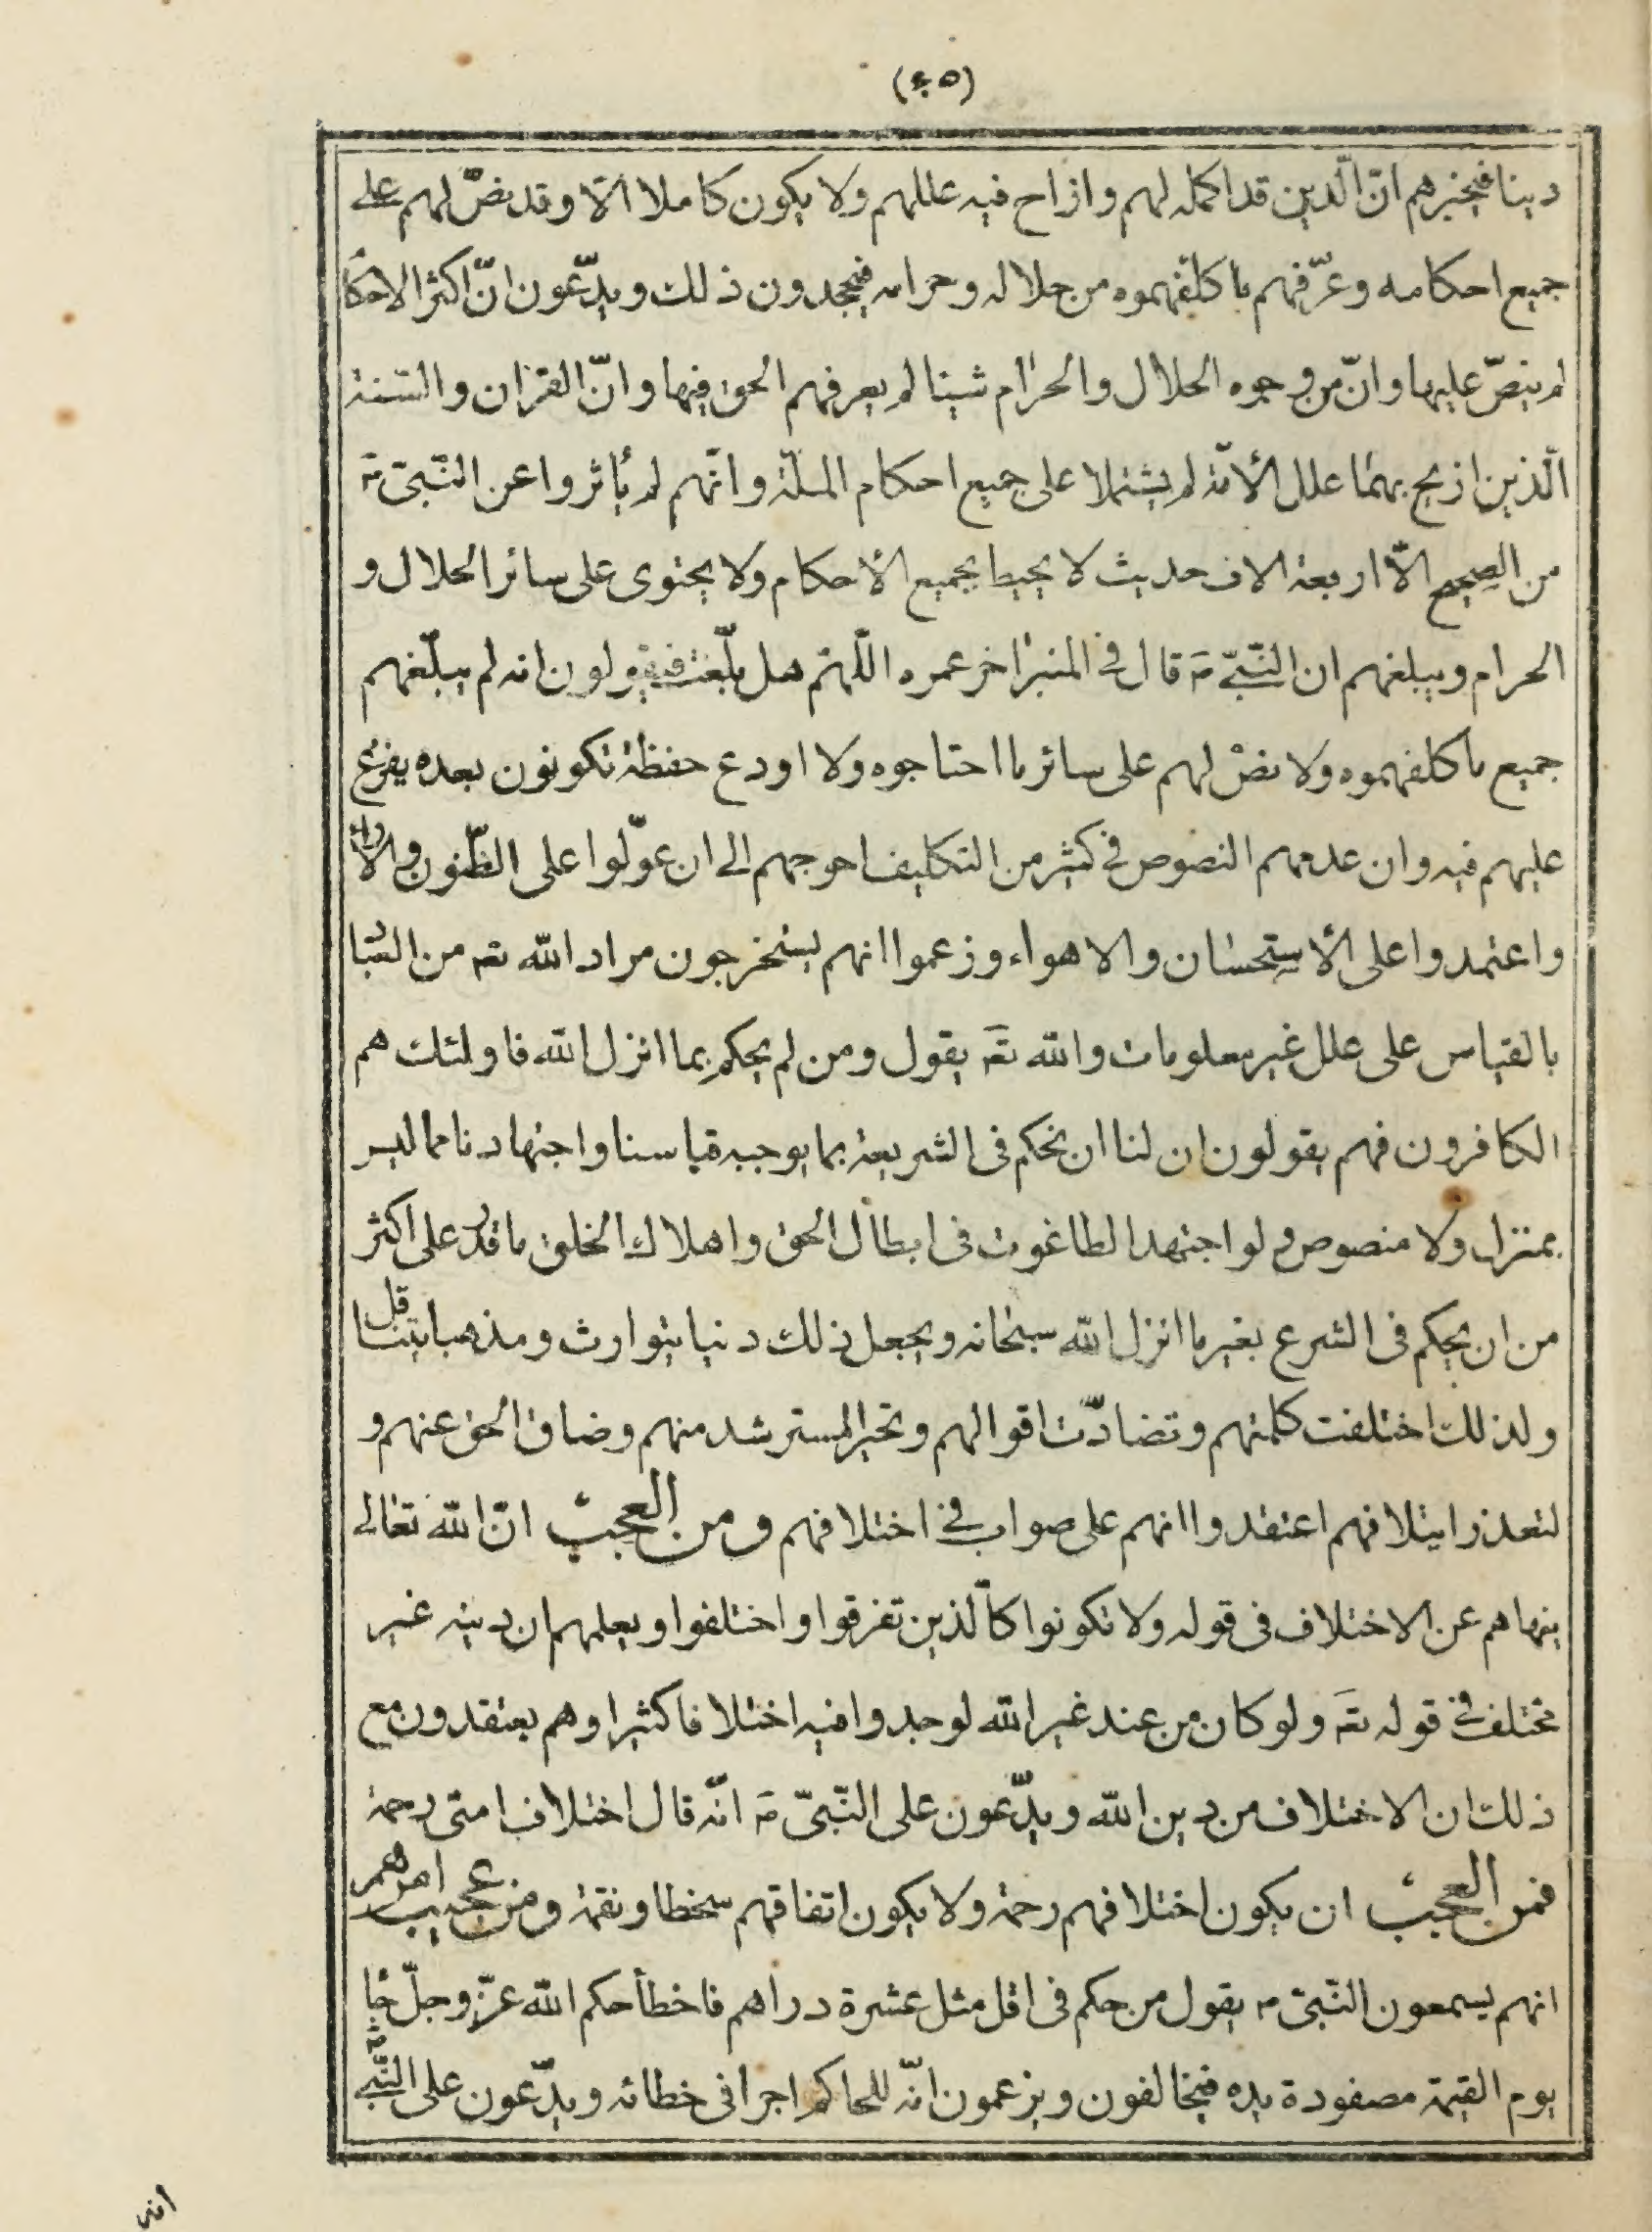 (٤٥)
دينا فيخبرهم انّ الّدين قد اكمله لهم وازاح فيه عللهم ولا يكون كاملا الّا وقد نصّ لهم على
جميع احكامه وعرّفهم ما كلّفهموه من حلاله وحرامه فيجحدون ذلك ويدّعون انّ اكثر الاحكا
لم ينصّ عليها وانّ من وجوه الحلال والحرام شيئا لم يعرفهم الحق فيها وانّ القران والسّنة
الّذين ازيح بهما علل الأمّة لم يشتملا على جميع احكام الملّة وانّهم لم يأثروا عن النّبىّ ص
من الصحيح الّا اربعة الاف حديث لا يحيط بجميع الأحكام ولا يحتوى على سائر الحلال و
الحرام ويبلغهم ان النّبىّ ص قال فى المنبر اخر عمره اللّهمّ هل بلّغت فيقولون انه لم يبلّغهم
جميع ما كلفهموه ولا نصّ لهم على سائر ما احتاجوه ولا اودع حفظة تكونون بعده يفزع
عليهم فيه وان عدمهم النصوص فى كثير من التكليف احوجهم الى ان عوّلوا على الظّنون والأراء
واعتمدوا على الأستحسان والاهواء وزعموا انهم يستخرجون مراد الله تعه من العباد
بالقياس على علل غير معلومات والله تعه يقول ومن لم يحكم بما انزل الله فاولئك هم
الكافرون فهم يقولون ان لنا ان نحكم فى الشريعة بما يوجبه قياسنا واجتهادنا مما ليس
بمنزل ولا منصوص ولو اجتهد الطاغوت فى ابطال الحق واهلاك الخلق ما قدر على اكثر
من ان يحكم فى الشرع بغير ما انزل الله سبحانه ويجعل ذلك دينا يتوارث ومذهبا يتناقل
ولذلك اختلفت كلمتهم وتضادّت اقوالهم وتحير المسترشد منهم وضاق الحق عنهم و
لتعذر ايتلافهم اعتقدوا انهم على صواب فى اختلافهم ومن العجب انّ الله تعالى
ينهاهم عن الاختلاف فى قوله ولا تكونوا كالّذين تفرقوا واختلفوا ويعلمهم ان دينه غير
مختلف فى قوله تعه ولو كان من عند غير الله لوجدوا فيه اختلافا كثيرا وهم يعتقدون مع
ذلك ان الاختلاف من دين الله ويدّعون على النّبىّ ص انّه قال اختلاف امتى رحمة
فمن العجب ان يكون اختلافهم رحمة ولا يكون اتفاقهم سخطا ونقمة ومن عجيب امرهم
انهم يسمعون النّبىّ ص يقول من حكم فى اقل مثل عشرة دراهم فاخطأ حكم الله عزّ وجلّ جا
يوم القيمة مصفودة يده فيخالفون ويزعمون انّه للحاكم اجرا فى خطائه ويدّعون على النّبى ص
انه